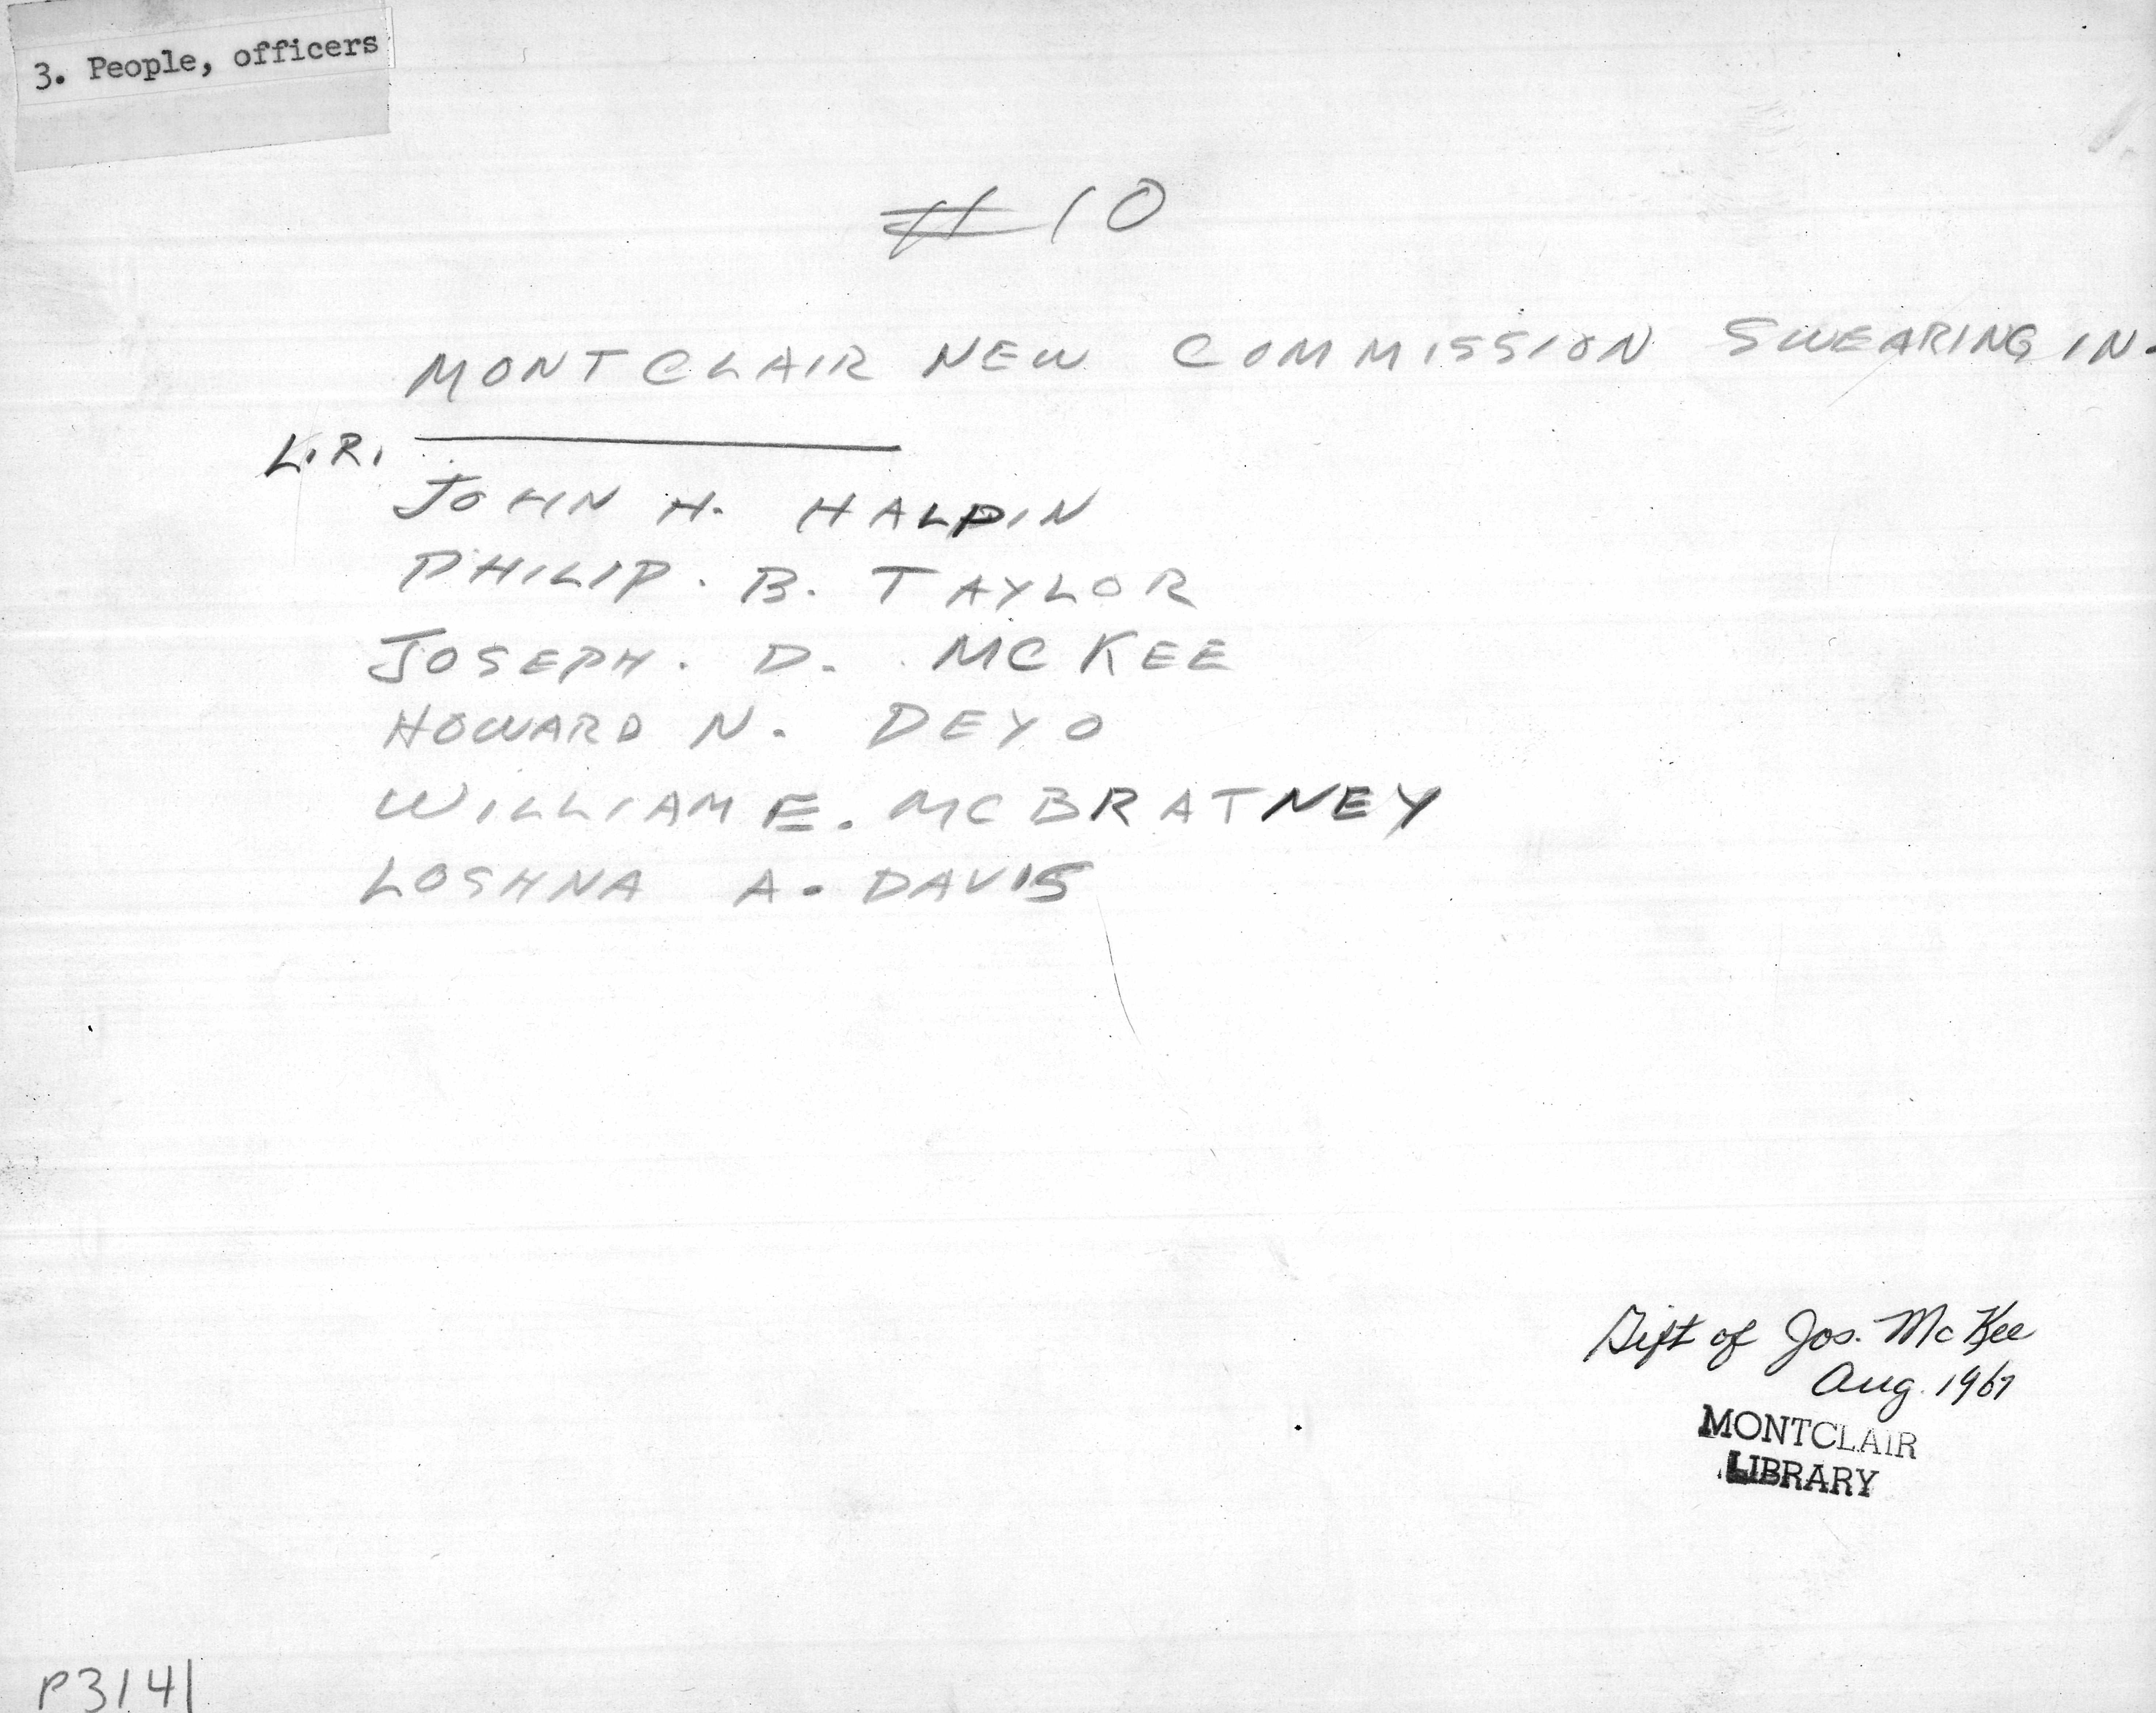 3. People, officers
# 10
MONTCLAIR NEW COMMISSION SWEARING IN.
L.R.
JOHN H. HALPIN
PHILIP. B. TAYLOR
JOSEPH. D. MCKEE
HOWARD N. DEYO
WILLIAM E. MCBRATNEY
LOSHNA A. DAVIS
Gift of Jos. McKee
Aug. 1967
MONTCLAIR
LIBRARY
P3141